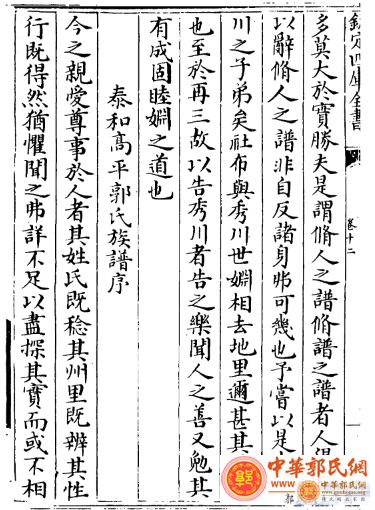 欽定四庫全書
卷十二
多莫大於寶勝夫是謂脩人之譜脩譜之譜者人
以辭脩人之譜非自反諸身弗可幾也予嘗以是
川之子弟矣社布與秀川世婣相去地里邇甚其
也至於再三故以告秀川者告之樂聞人之善又勉其
有成固睦婣之道也
泰和高平郭氏族譜序
今之親愛尊事於人者其姓氏既稔其州里既辨其性
行既得然猶懼聞之弗詳不足以盡探其實而或不相
中華郭氏網
郭
中華郭氏網